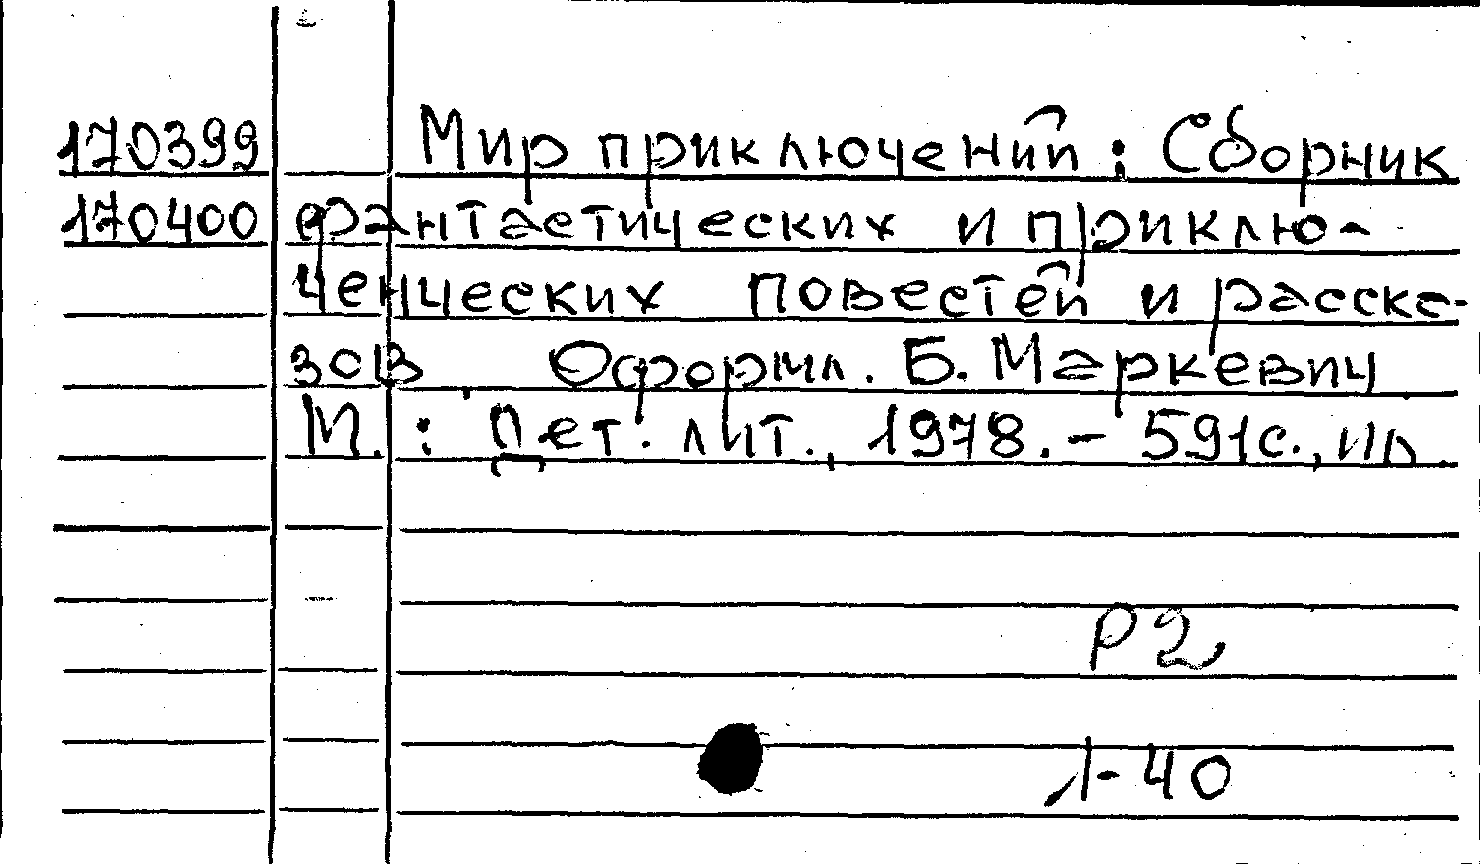 170399 Мир приключений : Сборник
170400 фантастических и приклю-
ченческих повестей и расска-
зов. Оформл. Б. Маркевич
М. : Дет. лит., 1978. - 591с., ил.
Р2
1-40